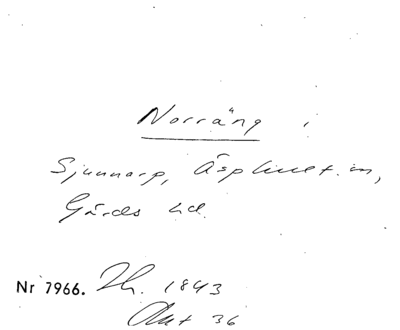 Norräng i
Sjunnarp, Äsphult sn,
Gärds hd.
Nr 7966. Lh. 1843
Akt 36